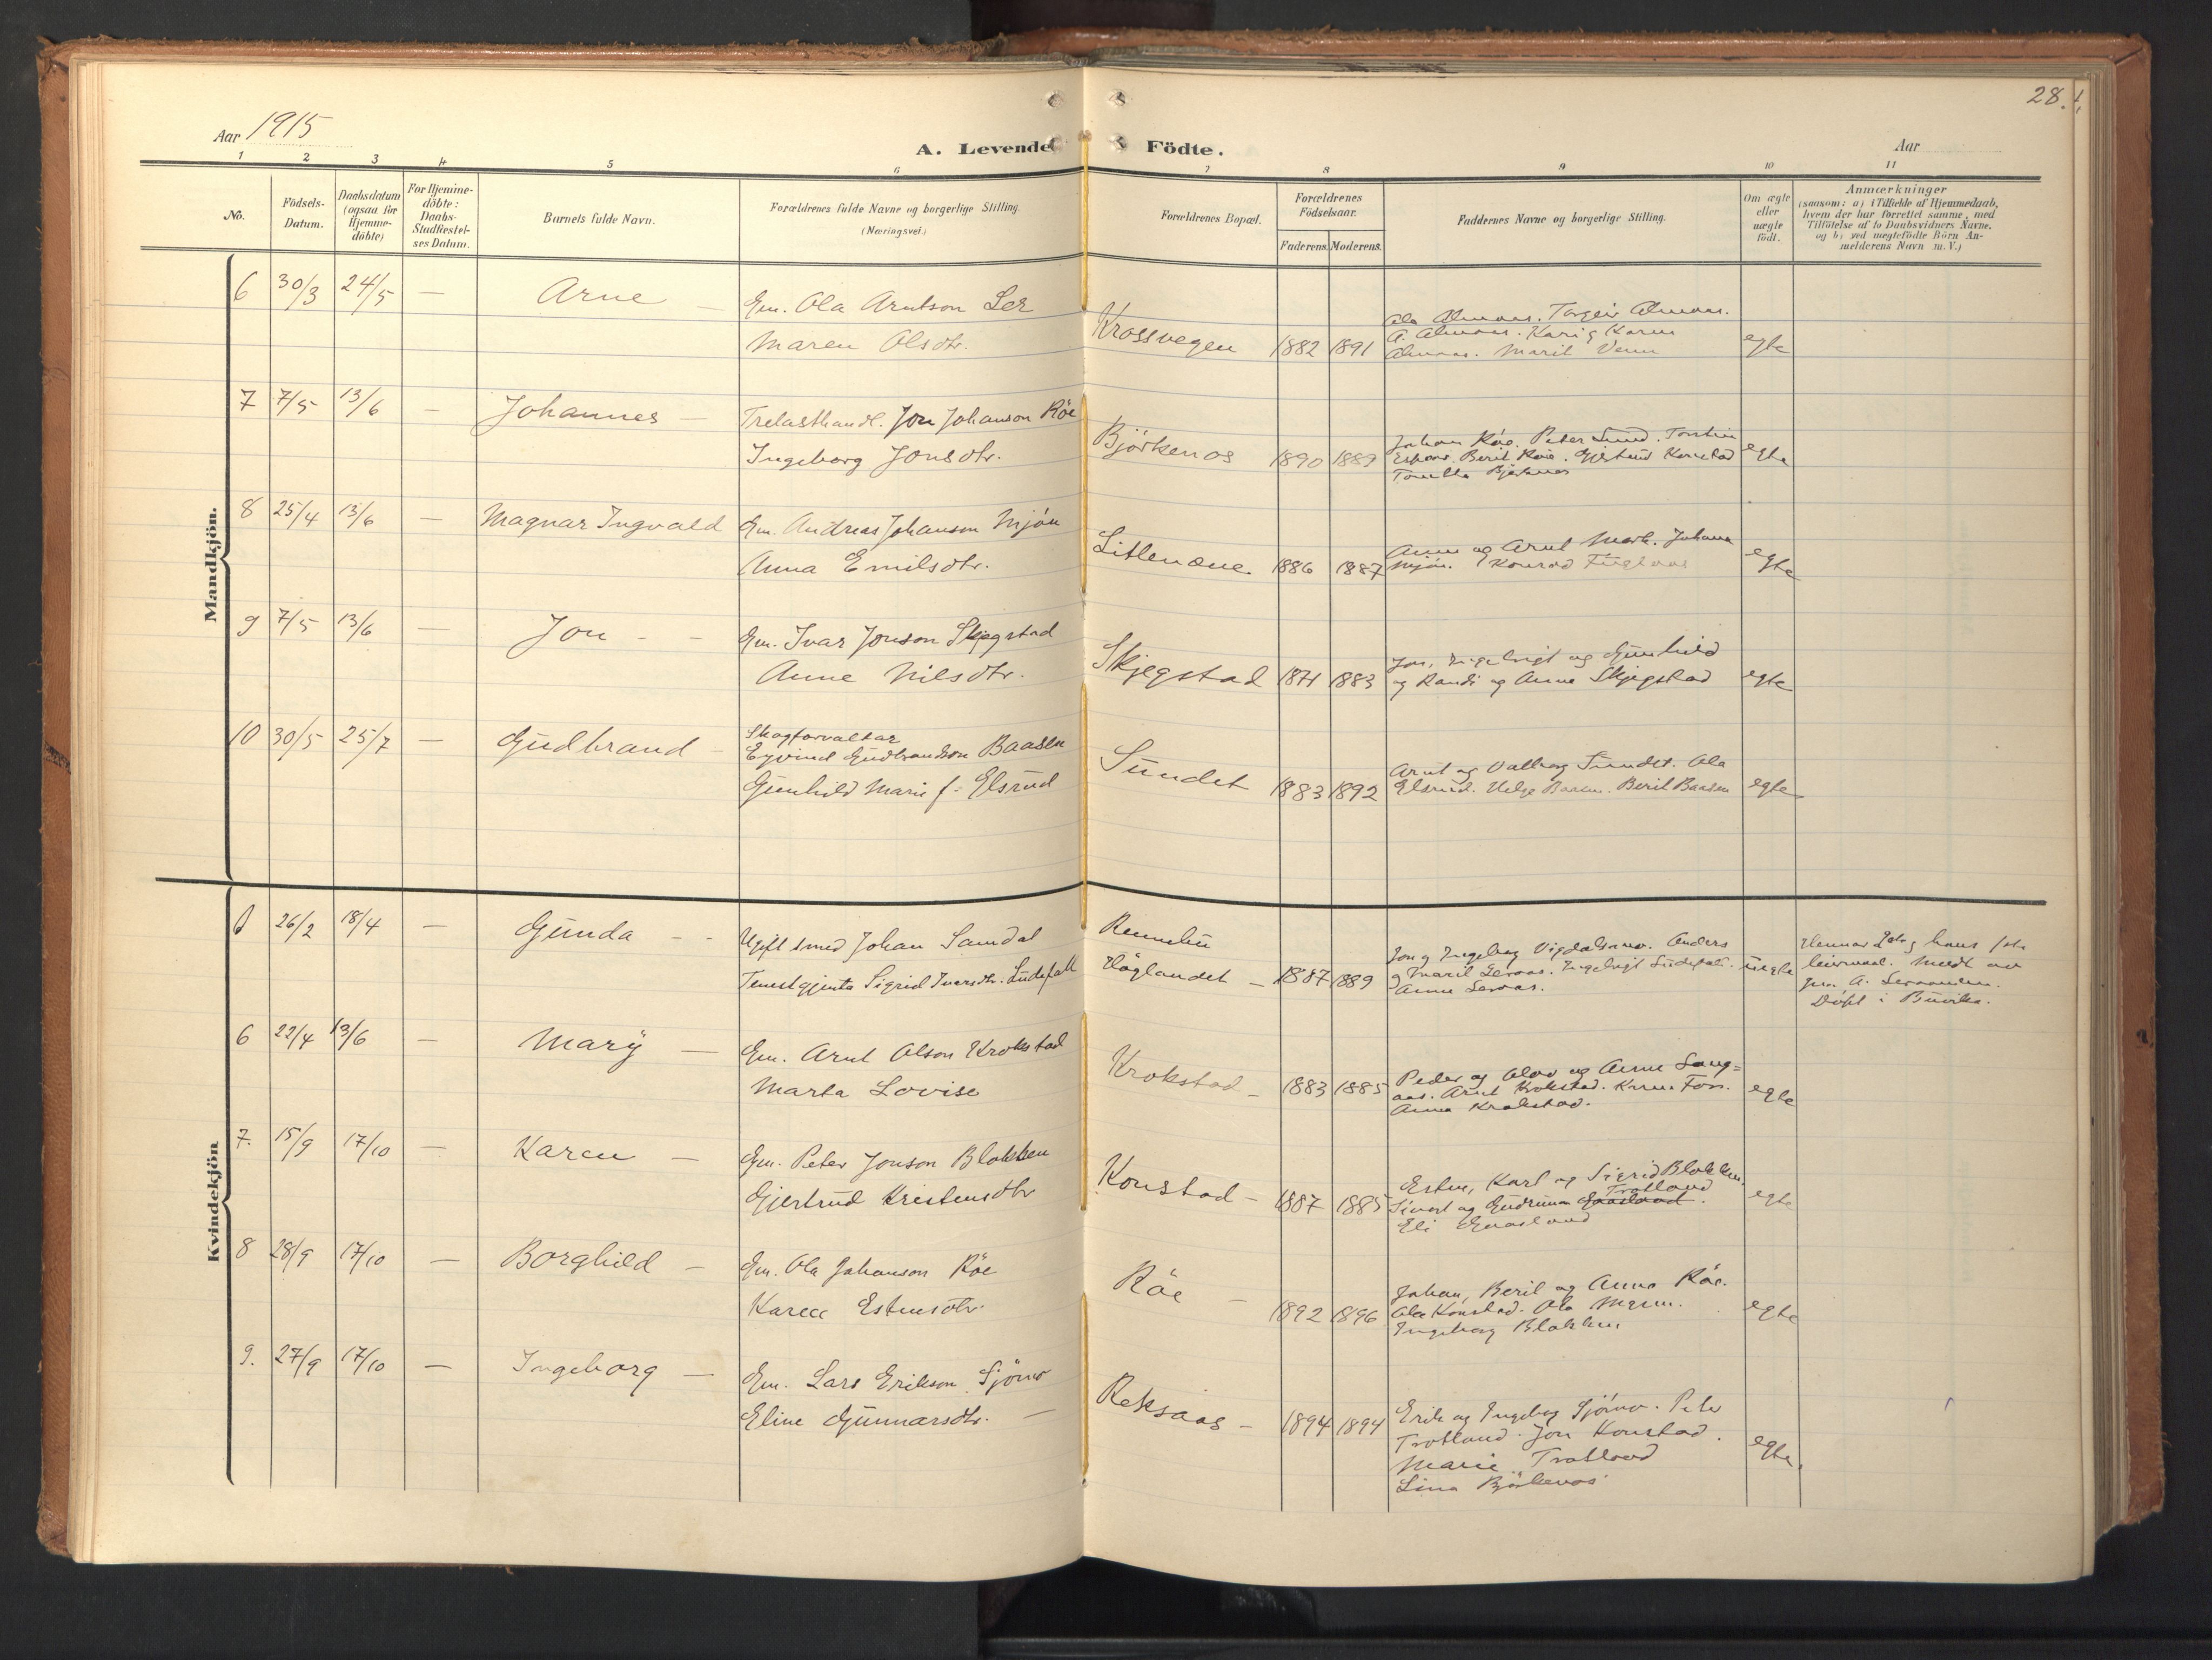 28.
Aar 1915
A. Levende Födte.
Aar
1 2 3 4 5 6 7 8 9 10 11
No.
Födsels-
Datum.
Daabsdatum
(ogsaa for
Hjemme-
döbte)
For Hjemme-
döbte:
Daabs-
Stadfæstel-
ses Datum.
Barnets fulde Navn.
Forældrenes fulde Navne og borgerlige Stilling.
(Næringsvei.)
Forældrenes Bopæl.
Forældrenes
Födselsaar.
Faderens. Moderens.
Faddernes Navne og borgerlige Stilling.
Om ægte
eller
uægte
födt.
Anmærkninger
(saasom: a) i Tilfælde af Hjemmedaab,
hvem der har forrettet samme, med
Tilföielse af to Daabsvidners Navne,
og b) ved uægtefödte Börn An-
melderens Navn m.V.)
Mandkjön.
6 30/3 24/5 — Arne — Gm. Ola Arntson Ler
Maren Olsdtr.
Krossvegen 1882 1891
Ola Almaas. Torgeir Almaas.
A. Almaas. Kari g Karen
Almaas. Marit Venn
egte
7 7/5 13/6 — Johannes — Trelasthandl. Jon Johanson Röe
Ingeborg Jonsdtr.
Björkenos 1890 1889
Johan Röe. Peter Sund.
Espaas. Berit Röe. Gjertrud Konstad
Bjørkenos
egte
8 25/4 13/6 — Magnar Ingvald Gm. Andreas Johanson Mjön
Anna Emilsdtr.
Litlenæve 1886 1887
Anne og Arnt Mork. Johanna
Mjön. Konrad Fuglaas
egte
9 7/5 13/6 — Jon - - Gm. Ivar Jonson Skjegstad
Anne Nilsdtr.
Skjegstad 1871 1883
Jon, Ingebrigt og Gunhild
og Randi og Anne Skjegstad
egte
10 30/5 25/7 — Gudbrand — Skogforvaltar
Eyvind Gudbrandson Baasen
Gunhild Marie f. Elsrud
Sundet 1883 1892
Arnt og Valborg Sundet. Ola
Elsrud. Helge Baasen. Berit Baasen
egte
Kvindekjön
26/2 18/4 — Gunda - - Ugift smed Johan Samdal
Tenestgjenta Sigrid Ivarsdtr. Ludefall
Rennebu
Höglandet — 1887 1889
Jon g Ingeborg Vigdalsmo. Anders
g Marit Leraas. Ingebrigt
Anne Leraas.
uegte
Hennar g hans 1ste
leiermaal. Meldt av
A.
Döbt i Buvika.
6 22/4 13/6 — Mary — Gm. Arnt Olson Krokstad
Marta Lovise
Krokstad — 1883 1885
Peder og Olav og Anne Lang=
aas. Arnt Krokstad. Karen Foss.
Anna Krokstad.
egte
7. 15/9 17/10 — Karen — Gm. Peter Jonson Blokken
Gjertrud Kristensdtr
Konstad — 1887 1885
Esten, Karl og Sigrid Blokken.
Trotland
Sivert og Gudrunn Gaasland.
Eli Gaasland
egte
8 28/9 17/10 — Borghild — Gm. Ola Johanson Röe
Karen Estensdtr.
Röe — 1892 1896
Johan, Berit og Anna Röe.
Ola Konstad. Ola
Ingeborg Blokken
egte
9. 27/9 17/10 — Ingeborg — Gm. Lars Erikson Sjömo
Eline Gunnarsdtr. —
Reksaas — 1894 1894
Erik og Ingeborg Sjömo. Peter
Trotland. Jon Konstad.
Marie Trotland
Lina Björkenos
egte.